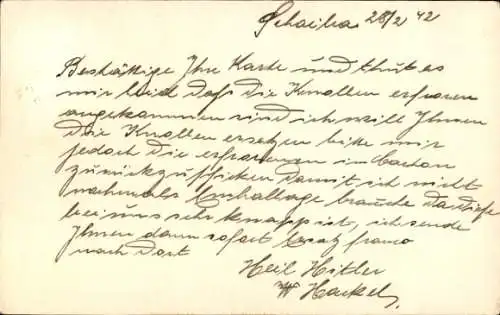 28/2 42
Bestättige Ihre Karte und thut es
mir leid daß die Knollen erfroren
angekommen sind ich will Ihnen
die Knollen ersetzen bitte mir
jedoch die erfrorenen im Carton
zurückzuschicken damit ich nicht
nochmals brauche da diese
bei uns sehr knapp ist, ich sende
Ihnen dann sofort Ersatz franco
nach dort
Heil Hitler